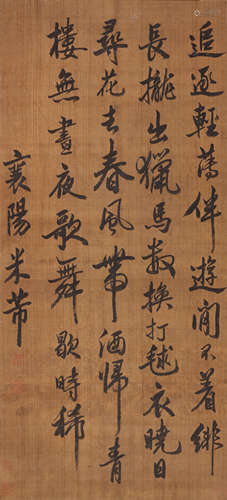 追逐輕薄伴遊閒不着緋
長攏出獵馬数換打毬衣曉日
尋花去春風帶酒歸青
樓無晝夜歌舞歇時稀
襄陽米芾